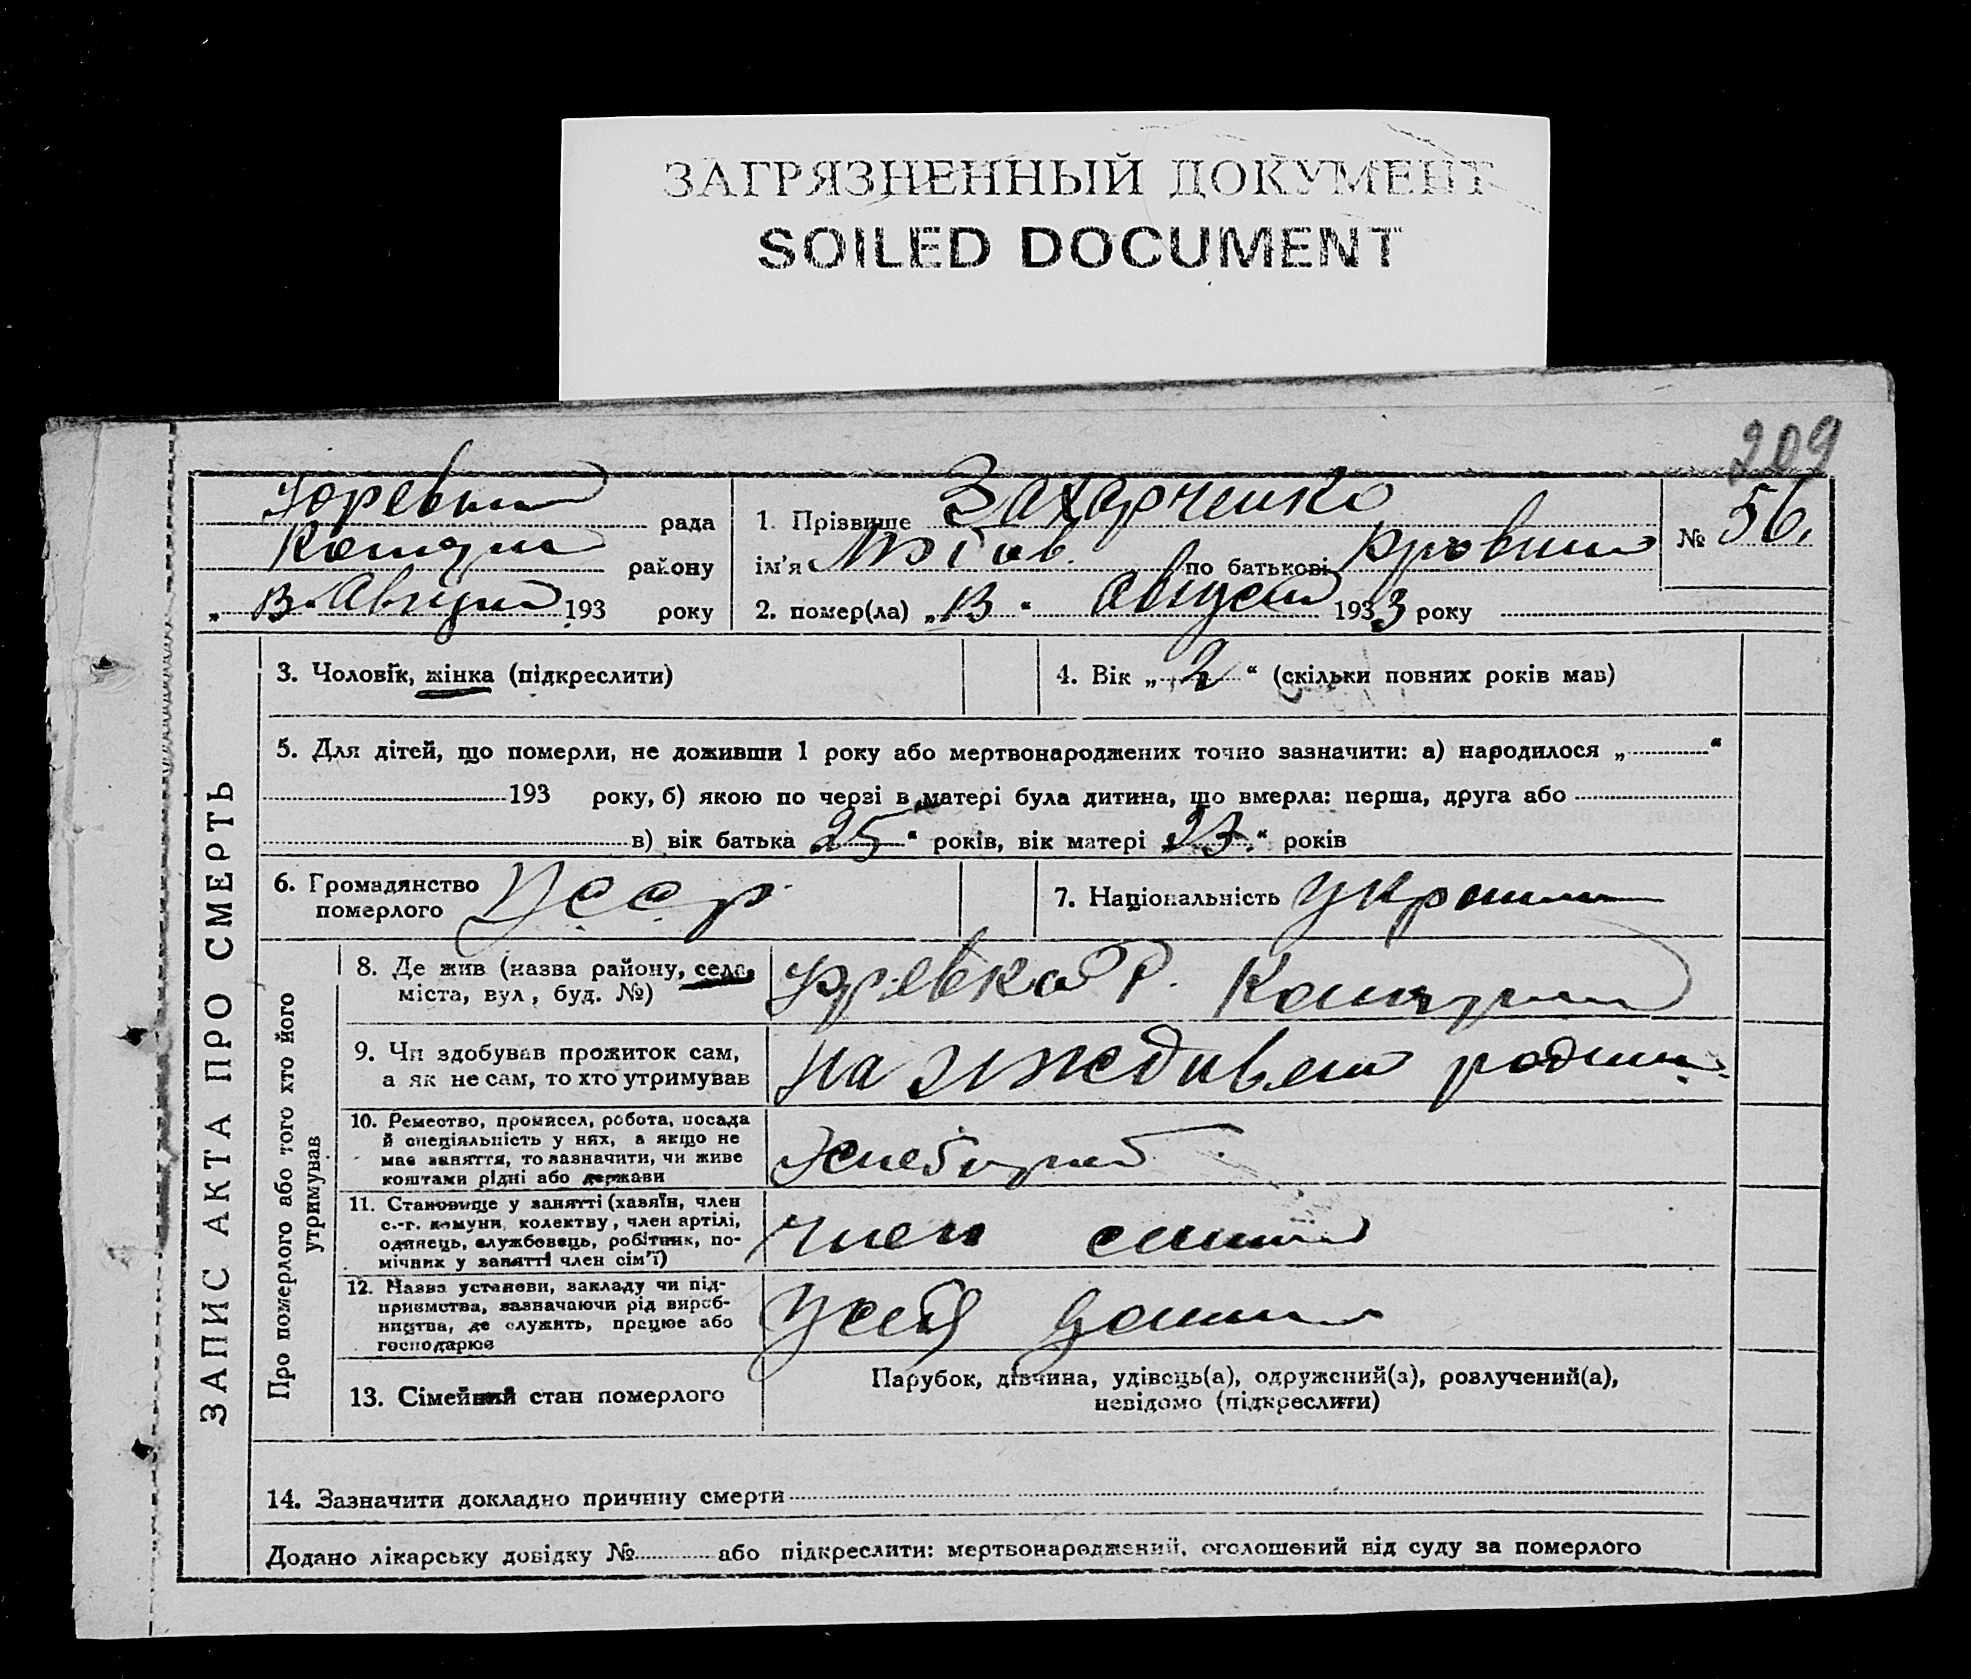 ЗАГРЯЗНЕННЫЙ ДОКУМЕНТ
SOILED DOCUMENT
209
рада
району
„ 13 193 року
1. Прізвище Захарченко
ім'я по батькові
2. помер(ла) „13" 1933 року
№ 56.
ЗАПИС АКТА ПРО СМЕРТЬ
3. Чоловік, жінка (підкреслити)
4. Вік „2" (скільки повних років мав)
5. Для дітей, що померли, не доживши 1 року або мертвонароджених точно зазначити: а) народилося „ "
193 року, б) якою по черзі в матері була дитина, що вмерла: перша, друга або
в) вік батька „25" років, вік матері „23" років
6. Громадянство
померлого
УССР
7. Національність
Про померлого або того хто його
утримував
8. Де жив (назва району, села,
міста, вул, буд. №)
9. Чи здобував прожиток сам,
а як не сам, то хто утримував
на
10. Ремество, промисел, робота, посада
й спеціяльність у них, а якщо не
має заняття, то зазначити, чи живе
коштами рідні або держави
11. Становище у занятті (хазяїн, член
с.-г. комуни, колектву, член артілі,
одинець, службовець, робітник, по-
мічник у занятті член сім'ї)
член
12. Назва установи, закладу чи під-
приємства, зазначаючи рід вироб-
ництва, де служить, працює або
господарює
13. Сімейний стан померлого
Парубок, дівчина, удівець(а), одружений(а), розлучений(а),
невідомо (підкреслити)
14. Зазначити докладно причину смерти
Додано лікарську довідку № або підкреслити: мертвонароджений, оголошений від суду за померлого